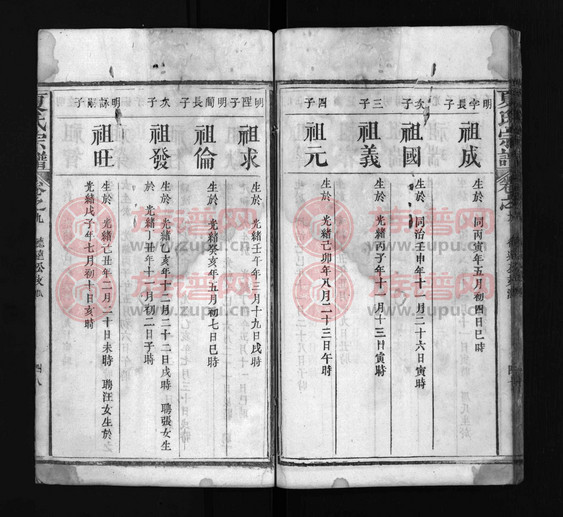 夏氏宗譜
明字長子
祖成
生於 同治丙寅年五月初四日巳時
次子
祖國
生於 同治壬申年十一月二十六日寅時
三子
祖義
生於 光緒丙子年十一月十三日寅時
四子
祖元
生於 光緒己卯年八月二十三日午時
明 子
祖求
生於 光緒壬午年三月十九日戌時
明蘭長子
祖倫
生於 光緒癸亥年五月初七日巳時
次子
祖發
生於 光緒乙亥年十二月二十二日戌時 聘張女生
於 光緒丁丑年十一月初二日子時
明詠 子
祖旺
生於 光緒己丑年二月二十日未時 聘汪女生於
光緒戊子年七月初十日亥時
夏氏宗譜 卷之九
四八
族譜网
www.zupu.cn